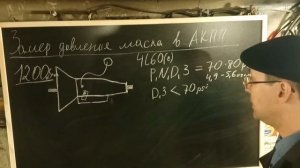 Замер давление масла в АКПП
4L60(e)
1200
P,N,D,3 = 70-80 p
4,9-5,6
D,3 < 70psi